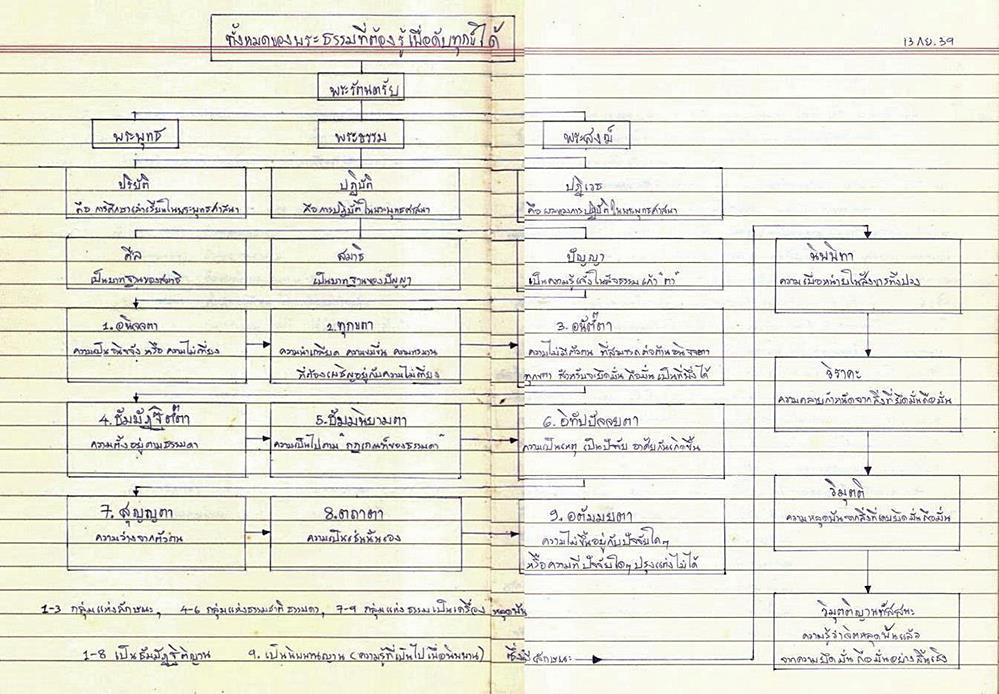 ทั้งหมดของพระธรรมที่ต้องรู้เพื่อดับทุกข์ได้
13 ก.ย. 39
พระรัตนตรัย
พระพุทธ
พระธรรม
พระสงฆ์
ปริยัติ
คือ การศึกษาเล่าเรียนในพระพุทธศาสนา
ปฏิบัติ
คือ การปฏิบัติในพระพุทธศาสนา
ปฏิเวธ
คือ ผลของการปฏิบัติในพระพุทธศาสนา
ศีล
เป็นบาทฐานของสมาธิ
สมาธิ
เป็นบาทฐานของปัญญา
ปัญญา
เป็นความรู้แจ้งในสัจธรรม เก้า "ตา"
นิพพิทา
ความเบื่อหน่ายในสังขารทั้งปวง
1. อนิจจตา
ความเป็นอนิจจัง หรือ ความไม่เที่ยง
2. ทุกขตา
ความน่าเกลียด ความขมขื่น ความทรมาน
ที่ต้องเผชิญอยู่กับความไม่เที่ยง
3. อนัตตา
ความไม่มีตัวตน ที่สามารถต่อต้านอนิจจตา
ทุกขตา สำหรับจะยึดมั่น ถือมั่น เป็นที่พึ่งได้
วิราคะ
ความคลายกำหนัดจากสิ่งที่ยึดมั่นถือมั่น
4. ธัมมัฏฐิตตา
ความตั้งอยู่ตามธรรมดา
5. ธัมมนิยามตา
ความเป็นไปตาม "กฎเกณฑ์ของธรรมดา"
6. อิทัปปัจจยตา
ความเป็นเหตุ เป็นปัจจัย อาศัยกันเกิดขึ้น
วิมุตติ
ความหลุดพ้นจากสิ่งที่เคยยึดมั่นถือมั่น
7. สุญญตา
ความว่างจากตัวตน
8. ตถาตา
ความเป็นเช่นนั้นเอง
9. อตัมมยตา
ความไม่ขึ้นอยู่กับปัจจัยใดๆ
หรือความที่ ปัจจัยใดๆ ปรุงแต่งไม่ได้
วิมุตติญาณทัสสนะ
ความรู้ว่าจิตหลุดพ้นแล้ว
จากความยึดมั่น ถือมั่นอย่างสิ้นเชิง
1-3 กลุ่มแห่งลักษณะ, 4-6 กลุ่มแห่งธรรมชาติ ธรรมดา, 7-9 กลุ่มแห่ง ธรรมเป็นเครื่อง หลุดพ้น
1-8 เป็นธัมมัฏฐิติญาณ 9. เป็นนิพพานญาณ (ความรู้ที่เป็นไปเพื่อนิพพาน) ซึ่งมีลักษณะ